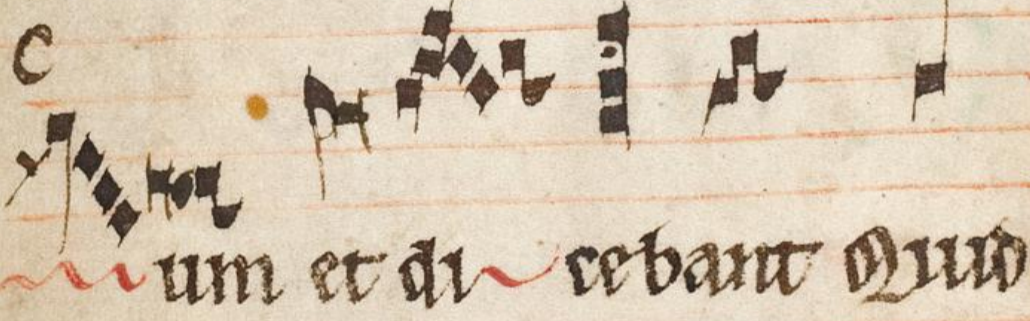 c
um et di cebant Quid